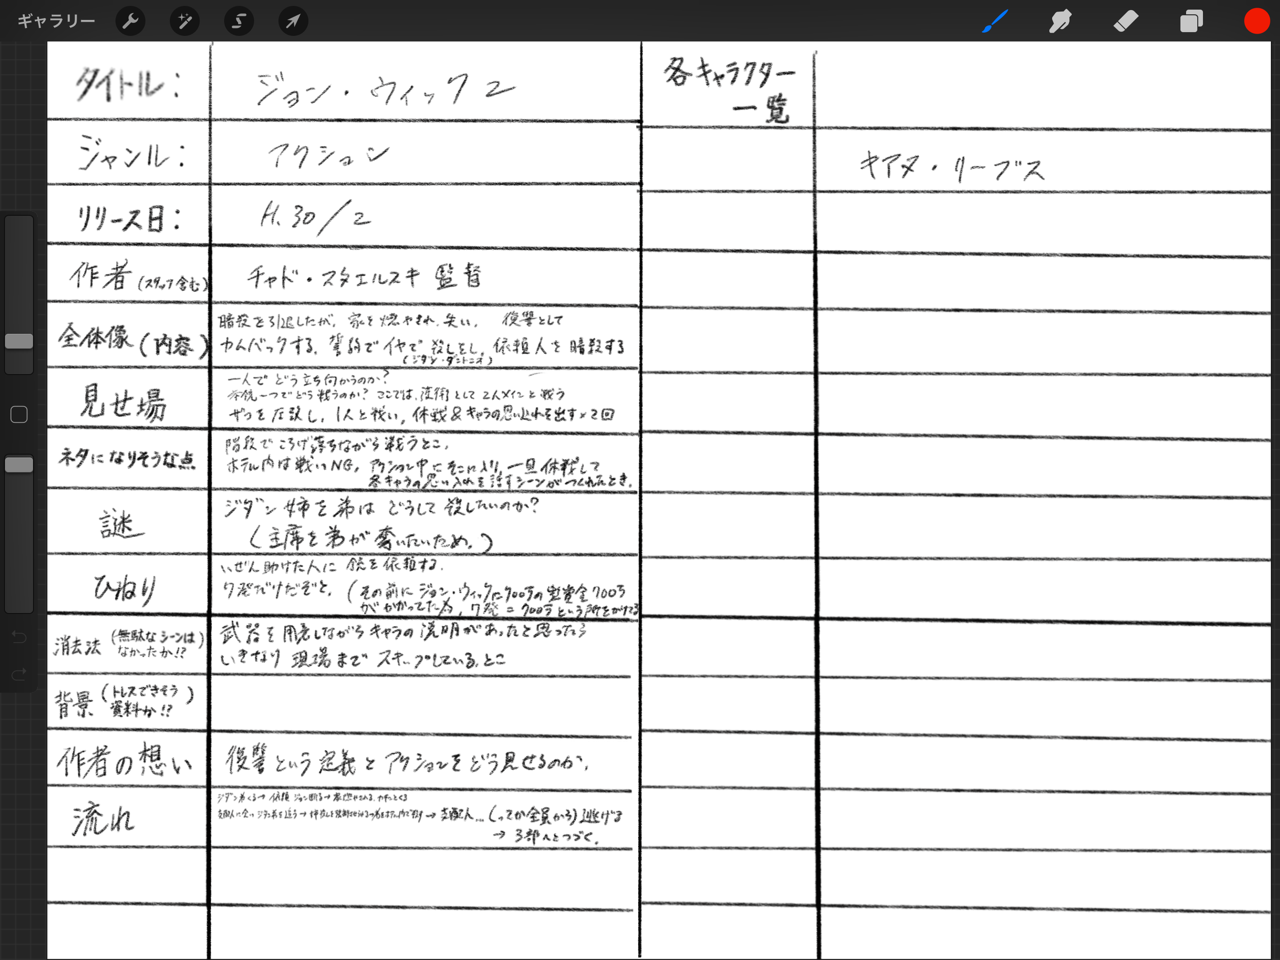 ギャラリー
タイトル: ジョン・ウィック2
ジャンル: アクション
リリース日: H.30/2
作者(スタッフ含む) チャド・スタエルスキ 監督
全体像(内容)
暗殺を引退したが、家を燃やされ、失い、 復讐として
カムバックする。誓約でイヤで殺しをし、依頼人を暗殺する
見せ場
一人でどう立ち向かうのか?
一つでどう戦うのか? ここでは、 として2人メインと戦う
し、1人と戦い、休戦&キャラの思い入れを出す×2回
ネタになりそうな点
階段でころげ落ちながら戦うとこ。
ホテル内は戦いNG。アクション中にそこに入り、一旦休戦して
各キャラの思い入れを話すシーンがつくれたとき。
謎
ジダン 姉を弟はどうして殺したいのか?
(主席を弟が奪いたいため。)
ひねり
いぜん助けた人に 銃を依頼する。
7発だけだぞと。(その前にジョン・ウィックに700万の 金700万
がかかってた為、7発=700万という所をかけてる
消去法(無駄なシーンはなかったか!?)
武器を用意しながらキャラの説明があったと思ったら
いきなり 現場までスキップしている。とこ
背景(トレスできそう資料か!?)
作者の想い
復讐という定義とアクションをどう見せるのか。
流れ
→ 支配人…(ってか全員から)逃げる
→ 3部へとつづく。
各キャラクター
一覧
キアヌ・リーブス